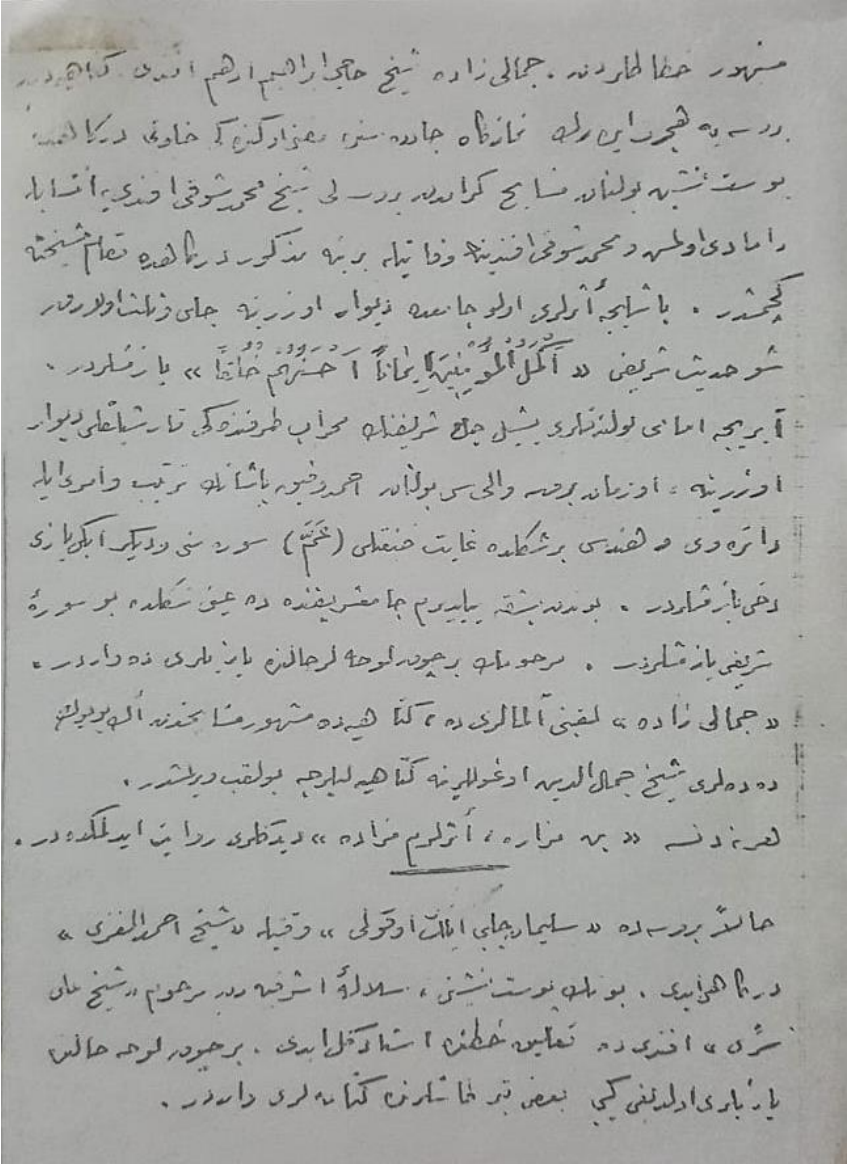 مشهور خطاطلردن . جمالی زاده شیخ حاجی ابراهیم ادهم افندی کتاهیه‌دن
بروسه‌یه هجرت ایده‌رك نمازكاه جاده سنده
پوست نشین بولنان مشایخ كرامدن بروسه لی شیخ محمد شوقی افندی‌یه انتسابله
دامادی اولمش و محمد شوقی افندینك وفاتیله یرینه مذكور دركاهده مقام مشیخته
كچمشدر . باشلیجه أثرلری اولو جامعده دیوار اوزرینه جلی ثلث اولارق
شو حدیث شریفی « أَكْمَلُ الْمُؤْمِنِينَ إِيمَاناً أَحْسَنُهُمْ خُلُقًا » یازمشلردر .
آیریجه امامی بولندقلری یشیل جامع شریفنك محراب طرفنده‌كی قارشیلقلی دیوار
اوزرینه ، اوزمان بروسه والی سی بولنان احمد وفیق پاشانك ترتیب وامری ایله
دائره وی و هندسی برشكلده غایت صنعتلی (عَمَّ) سوره سنی ودیكر ایكی یازی
دخی یازمشلردر . بوندن بشقه ییلدیرم جامع شریفنده ده عینی شكلده بو سورۀ
شریفی یازمشلردر . مرحومك برچوق لوحه لر حالنده یازیلری ده واردر .
« جمالی زاده » لقبنی آلمالری ده ، كتاهیه ده مشهور مشایخدن اك بویوك
ده ده لری شیخ جمال الدین اوغوللرینه كتاهیه لیلرجه بولقب ویرلمشدر .
هرنه دنسه « بن مزاره ، أثرلرم مزاده » دیدكلری روایت ایدلمكده در .
حالاً بروسه ده « سلیمان چلبی ایلك اوقولی » وقتیله « شیخ احمد الغزی »
دركاهی ایدی . بونك پوست نشینی ، سلالۀ اشرفیه دن مرحوم « شیخ علی
سری » افندی ده تعلیق خطنده استاد كل ایدی . برچوق لوحه حالنده
یازیلری اولدیغی كبی بعض قبر طاشلرنده كتابه لری واردر .